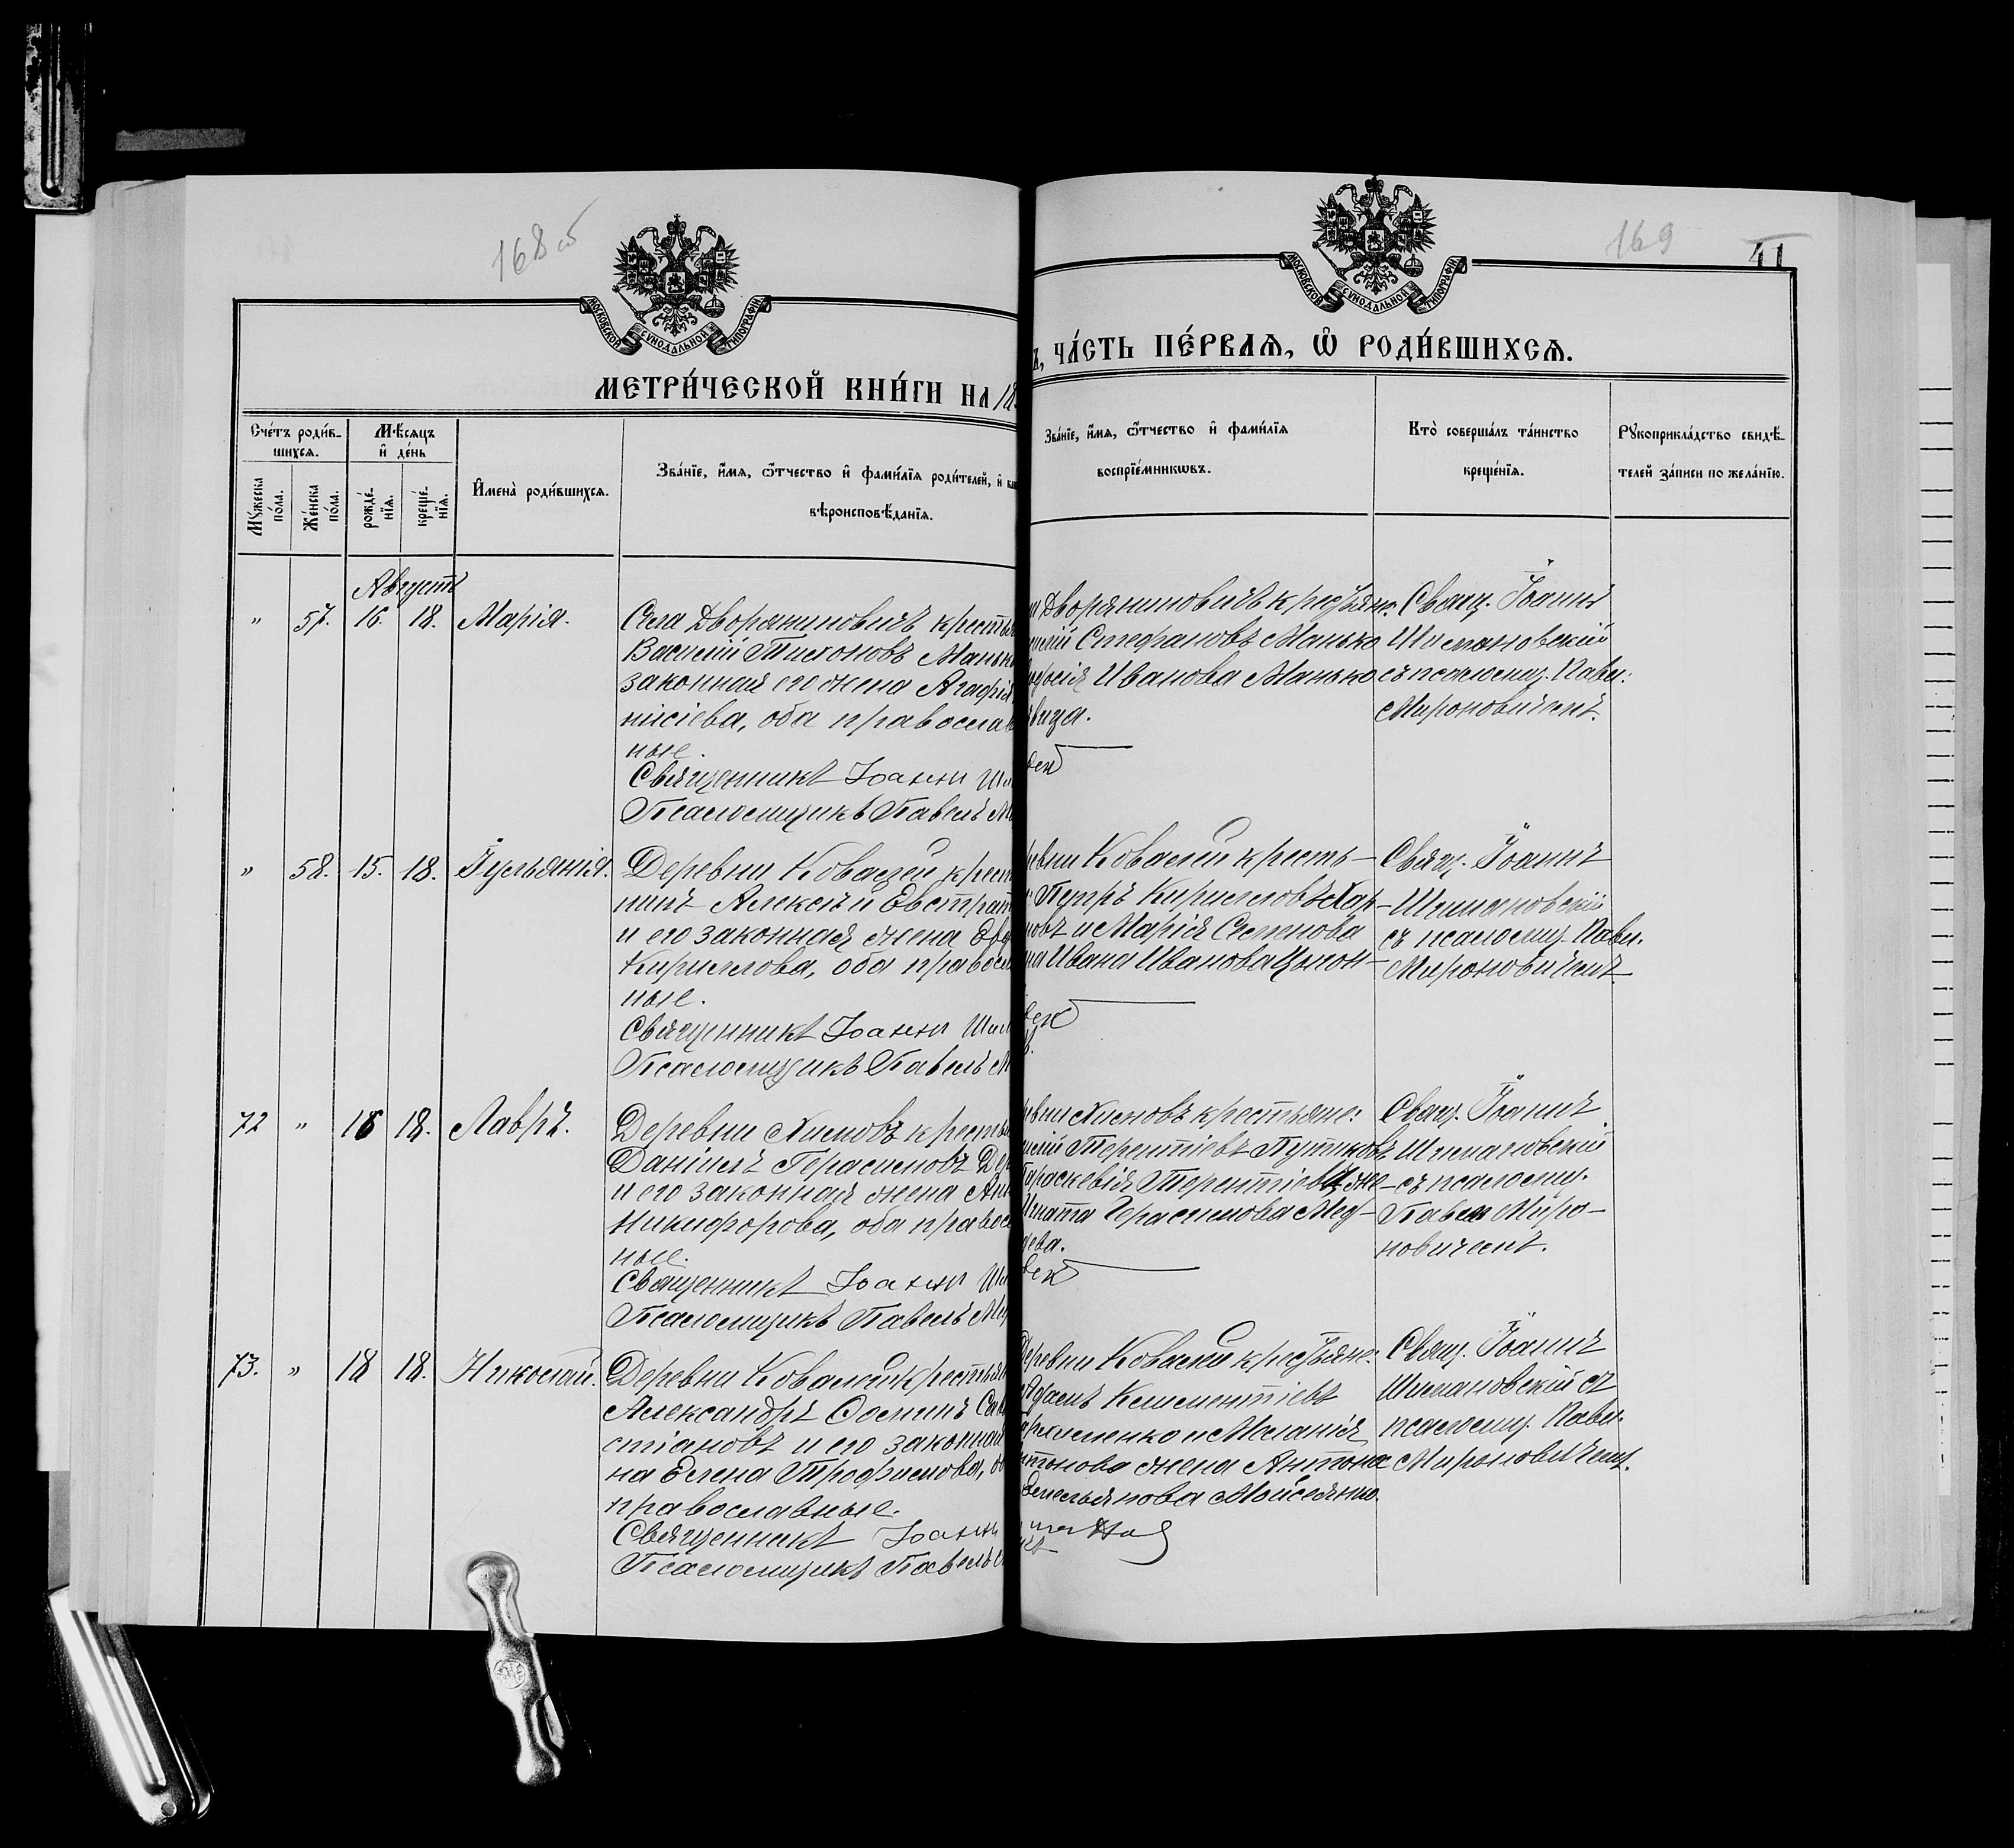 168 об
МОСКОВСКОЙ СѴНОДАЛЬНОЙ ТИПОГРАФІИ
МЕТРИ́ЧЕСКОЙ КНИ́ГИ НА 18
Сче́тъ роди́в-
шихся.
Мѣ́сяцъ
и҆ де́нь
Му́жеска по́ла.
Же́нска по́ла.
рожде́-
нїя.
креще́-
нїя.
И҆мена̀ роди́вшихся.
Зва́нїе, и҆́мя, ѻ҆́тчество и҆ фами́лїя роди́телей, и҆
вѣроисповѣ́данїя.
Августъ
" 57. 16. 18. Марія.
Села Дворяниновичъ кресть
Василій Тихоновъ Маньк
законная его жена Агафія
нисіева, оба православ
ные.
Священникъ Іоаннъ Ши
Псаломщикъ Павелъ М
" 58. 15. 18. Іуліанія.
Деревни Ковалей крест
нинъ Алексѣй Евстрат
и его законная жена Евд
Кириллова, оба правосл
ные.
Священникъ Іоаннъ Шим
Псаломщикъ Павелъ М
72 " 16 18. Лавръ.
Деревни Хисновъ кресть
Даніилъ Герасимовъ
и его законная жена Анн
Никифорова, оба правос
ные.
Священникъ Іоаннъ Ши
Псаломщикъ Павелъ Ми
73. " 18 18. Николай.
Деревни Ковалей крестьян
Александръ Ѳоминъ Сав
стіановъ и его законная
на Елена Трофимова, об
православные.
Священникъ Іоанн
Псаломщикъ Павелъ
169
41
МОСКОВСКОЙ СѴНОДАЛЬНОЙ ТИПОГРАФІИ
Ъ, ЧА́СТЬ ПЕ́РВАЯ, Ѡ҆ РОДИ́ВШИХСЯ.
Зва́нїе, и҆́мя, ѻ҆́тчество и҆ фами́лїя
воспрїе́мникѡвъ.
Кто̀ соверша́лъ та́инство
креще́нїя.
Рꙋкоприкла́дство свидѣ́-
телей за́писи по жела́нїю.
Дворяниновичъ крестьяне:
Стефановъ Манько
Иванова Манько
вица.
Свящ. Іоаннъ
Шимановскій
съ псаломщ. Павл.
Мироновичемъ.
Ковалей кресть-
Петръ Кирилловъ Хар-
новъ и Марія Семенова
на Ивана Иванова Цыган-
Свящ. Іоаннъ
Шимановскій
съ псаломщ. Павл.
Мироновичемъ
Хисновъ крестьяне:
Терентіевъ Путиковъ
Параскевія Терентіева же-
Игната Герасимова Мед-
дева.
Свящ. Іоаннъ
Шимановскій
съ псаломщ.
Павл. Миро-
новичемъ.
Деревни Ковалей крестьяне:
Климентіевъ
и Меланія
Антонова жена Антона
Емельянова Мойсеянко.
Свящ. Іоаннъ
Шимановскій съ
псаломщ. Павл.
Мироновичемъ.